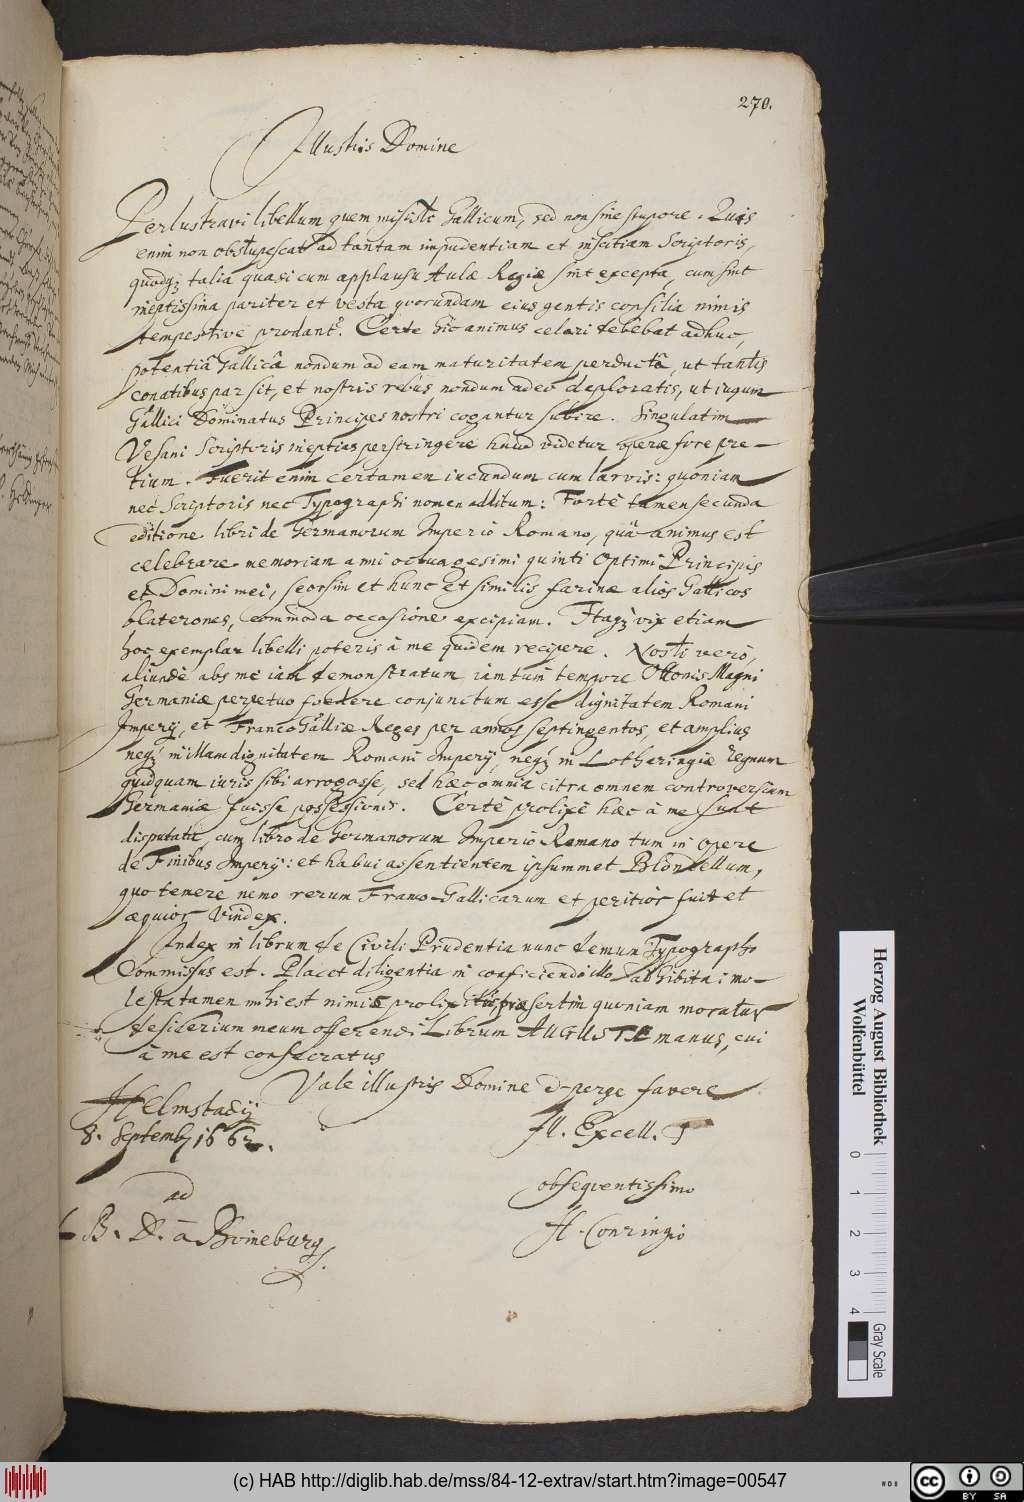 270.
Illustris Domine
Perlustravi libellum quem misisti Gallicum, sed non sine stupore. Quis
enim non obstupescat ad tantam impudentiam et inscitiam Scriptoris,
quodq; talia quasi cum applausu Aulæ Regiæ sint excepta, cum sint
ineptissima pariter et vesta quorundam eius gentis consilia nimis
tempestivè prodant. Certe hic animus celari debebat adhuc,
potentiâ Gallicâ nondum ad eam maturitatem perductâ, ut tantis
conatibus par sit, et nostris rebus nondum adeo deploratis, ut iugum
Gallici Dominatus Principes nostri cogantur subire. Singulatim
Vesani Scriptoris ineptias perstringere haud videtur operæ fore pre-
tium. Fuerit enim certamen iucundum cum larvis: quoniam
nec Scriptoris nec Typographi nomen additum: Fortè tamen secunda
editione libri de Germanorum Imperio Romano, quâ animus est
celebrare memoriam anni octuagesimi quinti Optimi Principis
et Domini mei, seorsim et hunc et similis farinæ alios Gallicos
blaterones, commoda occasione excipiam. Itaq; vix etiam
hoc exemplar libelli poteris à me quidem recipere. Nosti verò,
aliundè abs me iam demonstratum, iam tum tempore Ottonis Magni
Germaniæ perpetuo foedere conjunctum esse dignitatem Romani
Imperij, et FrancoGalliæ Reges per annos septingentos, et amplius
neq; in illam dignitatem Romani Imperij, neq; in Lotharingiæ regnum
quidquam iuris sibi arrogasse, sed hæc omnia citra omnem controversiam
Germaniæ fuisse possessionis. Certè prolixè hæc à me sunt
disputata, cum libro de Germanorum Imperio Romano tum in opere
de Finibus Imperij: et habui assentientem ipsummet Blondellum,
quo temere nemo rerum Franco-Gallicarum et peritior fuit et
æquior Vindex.
Index in librum de Civili Prudentia nunc demum Typographo
Commissus est. Placet diligentia in conficiendo illo adhibita; mo-
lesta tamen mihi est nimiæ prolixitas, præsertim quoniam moratur
desiderium meum offerendi Librum AUGUSTÆ manus, cui
à me est consecratus
Vale illustris Domine & perge favere
Helmstadij
8. Septemb, 1662.
Il. Excell. T
ad
obsequentissimo
L. B. D. à Boineburg.
H. Conringio
Herzog August Bibliothek
Wolfenbüttel
0 1 2 3 4
Gray Scale
(c) HAB http://diglib.hab.de/mss/84-12-extrav/start.htm?image=00547
cc BY SA